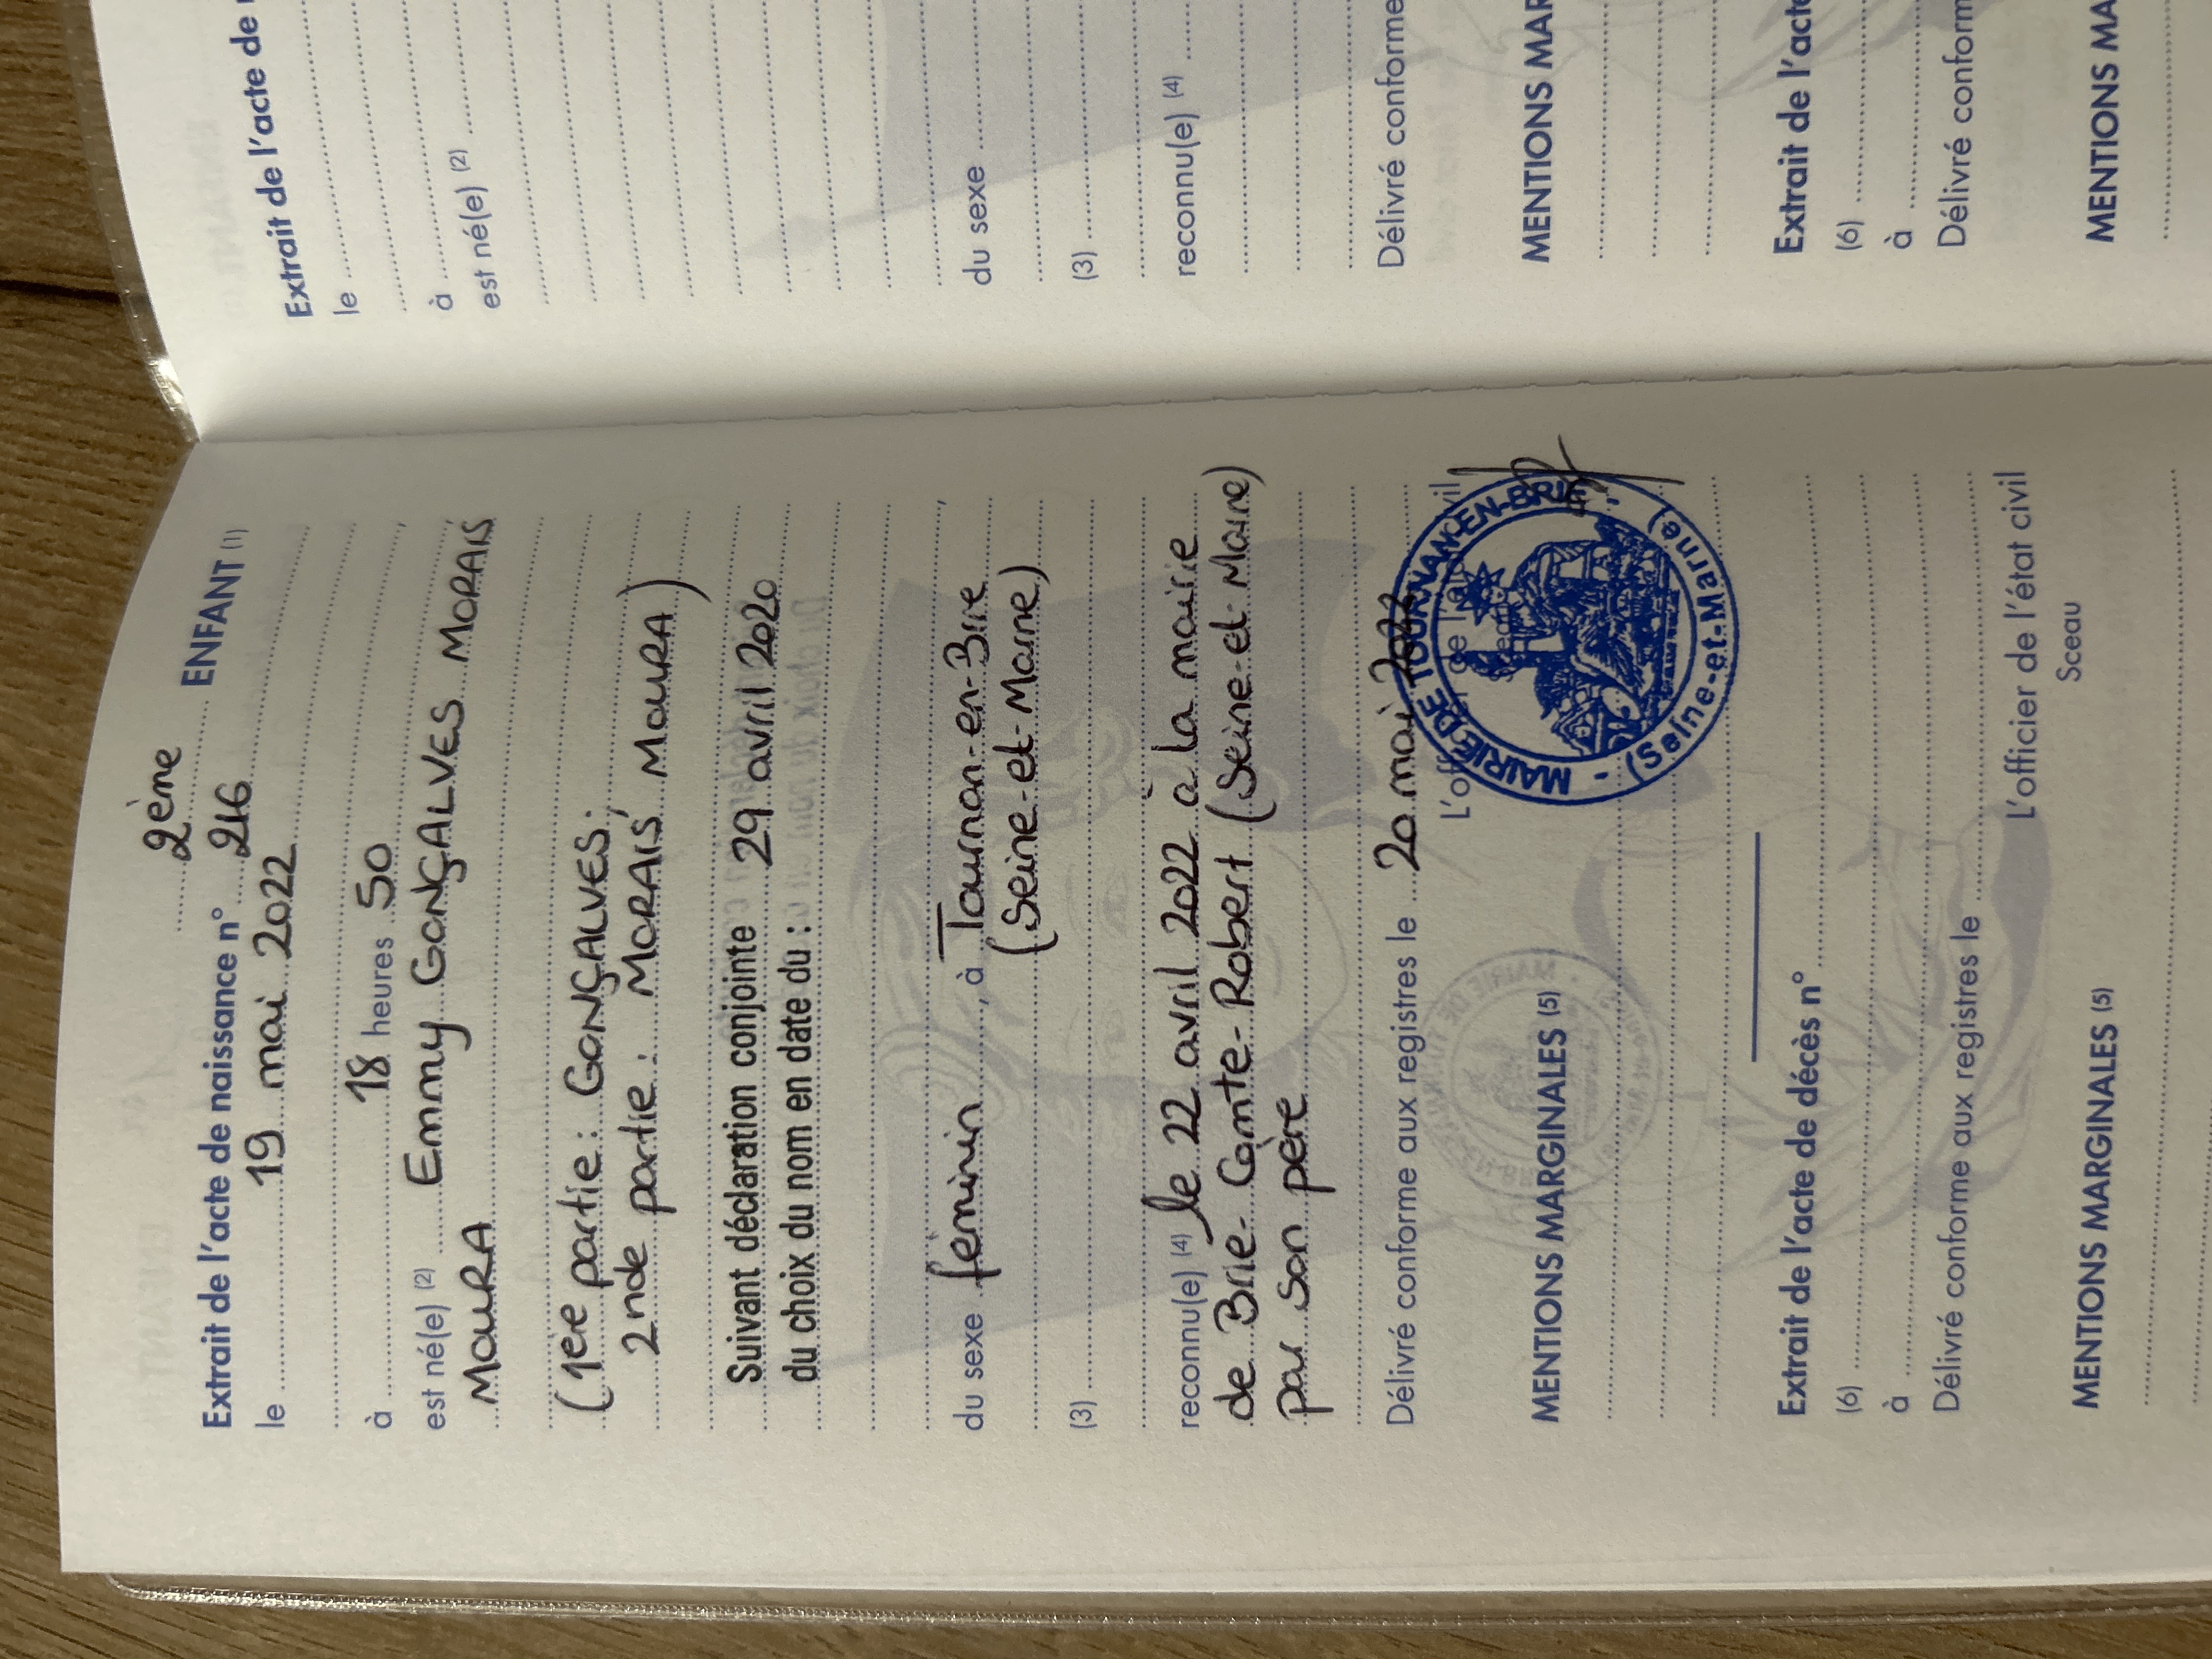 2ème ENFANT (1)
Extrait de l'acte de naissance n° 216
le 19 mai 2022
à 18 heures 50
est né(e) (2) Emmy GONÇALVES MORAIS
MOURA
(1ère partie : GONÇALVES.
2nde partie : MORAIS MOURA)
Suivant déclaration conjointe 29 avril 2020
du choix du nom en date du :
du sexe féminin, à Tournan-en-Brie
(Seine-et-Marne)
(3)
reconnu(e) (4) le 22 avril 2022 à la mairie
de Brie-Comte-Robert (Seine-et-Marne)
par son père
Délivré conforme aux registres le 20 mai
MAIRIE DE TOURNAN-EN-BRIE
(Seine-et-Marne)
MENTIONS MARGINALES (5)
Extrait de l'acte de décès n°
(6)
à
Délivré conforme aux registres le
L'officier de l'état civil
Sceau
MENTIONS MARGINALES (5)
Extrait de l'acte de
le
à
est né(e) (2)
du sexe
(3)
reconnu(e) (4)
Délivré conforme
MENTIONS MAR
Extrait de l'acte
(6)
à
Délivré conform
MENTIONS MA